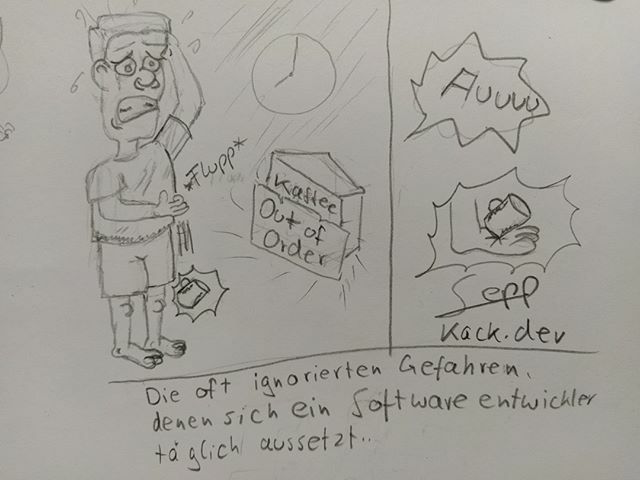 *Flupp*
Kaffee
Out of
Order
Auuuu
Sepp
Kack.dev
Die oft ignorierten Gefahren,
denen sich ein Softwareentwickler
täglich aussetzt..